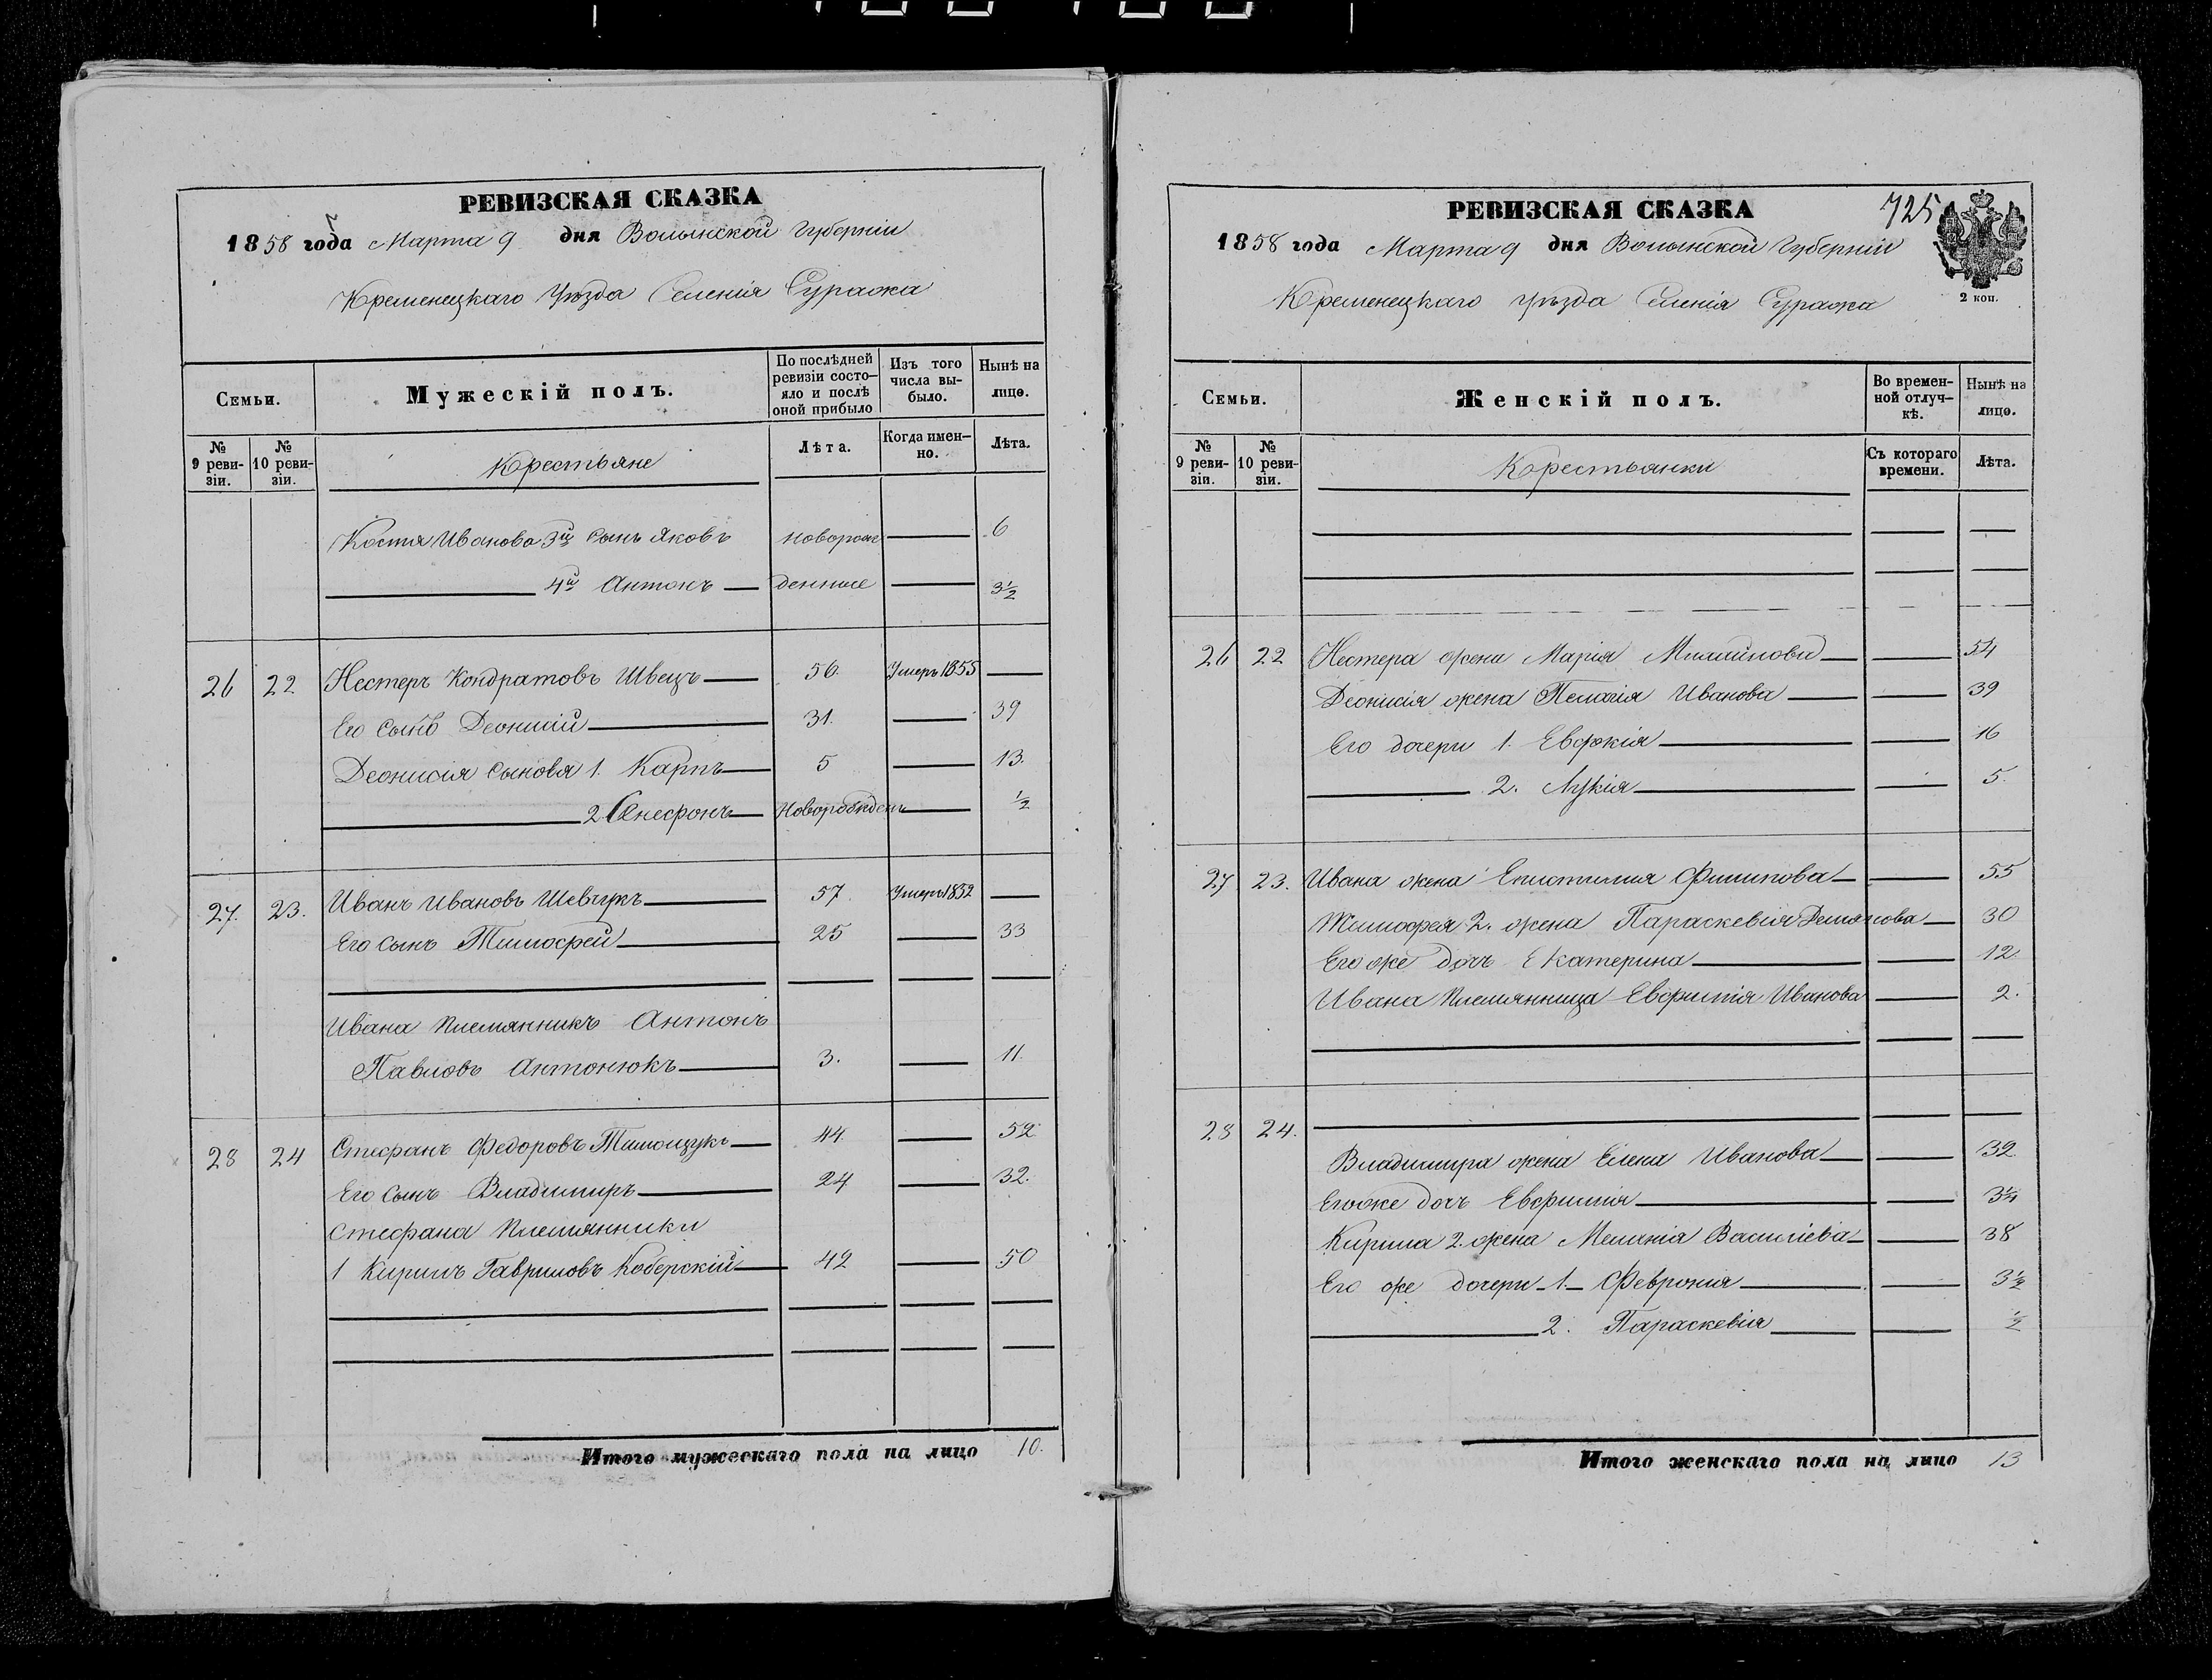 РЕВИЗСКАЯ СКАЗКА
1858 года Марта 9 дня Волынской Губерніи
Кременецкаго Уѣзда Селенія Суража
Семьи.
Мужескій полъ.
По послѣдней ревизіи состо-яло и послѣ оной прибыло
Изъ того числа вы-было.
Нынѣ на лицо.
№ 9 реви-зіи.
№ 10 реви-зіи.
Крестьяне
Лѣта.
Когда имен-но.
Лѣта.
Костя Иванова 3й сынъ Яковъ новорож 6
4й Антонъ денные 3½
26 22 Нестеръ Кондратовъ Швецъ 56. Умеръ 1855
Его сынъ Деонисій 31. 39
Деонисія сыновя 1. Карпъ 5 13.
2. Новорожденъ ½
27. 23. Иванъ Ивановъ Шевчукъ 57 Умеръ 1852
Его сынъ Тимофей 25 33
Ивана племянникъ Антонъ
Павловъ Антонюкъ 3. 11.
28 24 Стефанъ Федоровъ Тимощукъ 44. 52
Его сынъ Владимиръ 24 32.
Стефана племянники
1 Кирилъ Гавриловъ Коберскій 42 50
Итого мужескаго пола на лицо 10.
РЕВИЗСКАЯ СКАЗКА
725
1858 года Марта 9 дня Волынской Губерніи
2 коп.
Кременецкаго Уѣзда Селенія Суража
Семьи.
Женскій полъ.
Во времен-ной отлуч-кѣ.
Нынѣ на лицо.
№ 9 реви-зіи.
№ 10 реви-зіи.
Крестьянки
Съ котораго времени.
Лѣта.
26 22 Нестера жена Марія 54
Деонисія жена Пелагія Иванова 39
Его дочери 1. Евдокія 16
2. Лукія 5.
27 23. Ивана жена Епистимия Филипова 55
Тимофея 2. жена Параскевія Демянова 30
Его же дочь Екатерина 12
Ивана племянница Евфимія Иванова 2.
28 24.
Владимира жена Елена Иванова 32
Егоже дочь Евфимія 3¼
Кирила 2. жена Меланія Василіева 38
Его же дочери 1 Феврония 3½
2. Параскевія ½
Итого женскаго пола на лицо 13